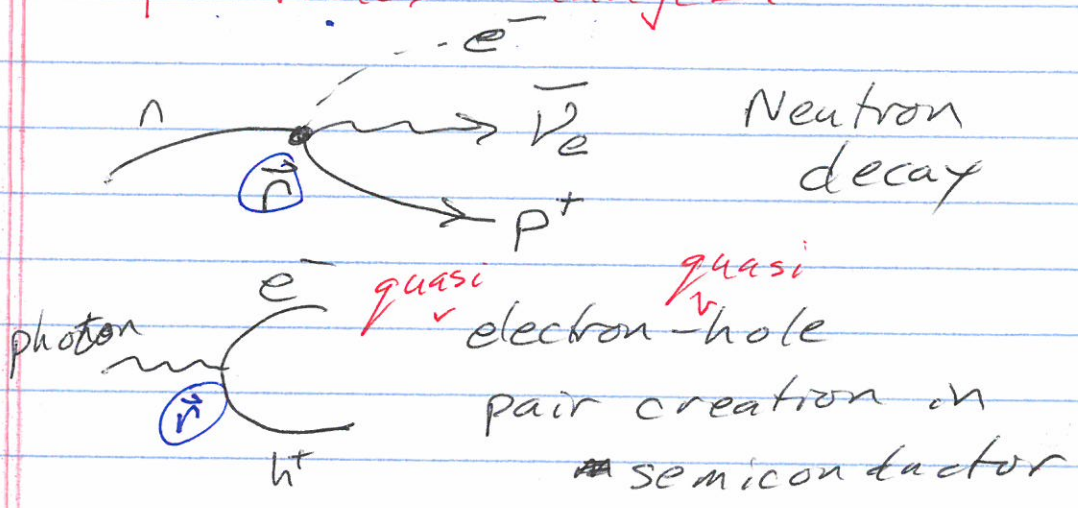 e⁻
n
ν̄ₑ
Neutron
decay
r⃗
p⁺
e⁻
quasi quasi
photon
electron-hole
r⃗
pair creation in
h⁺
semiconductor